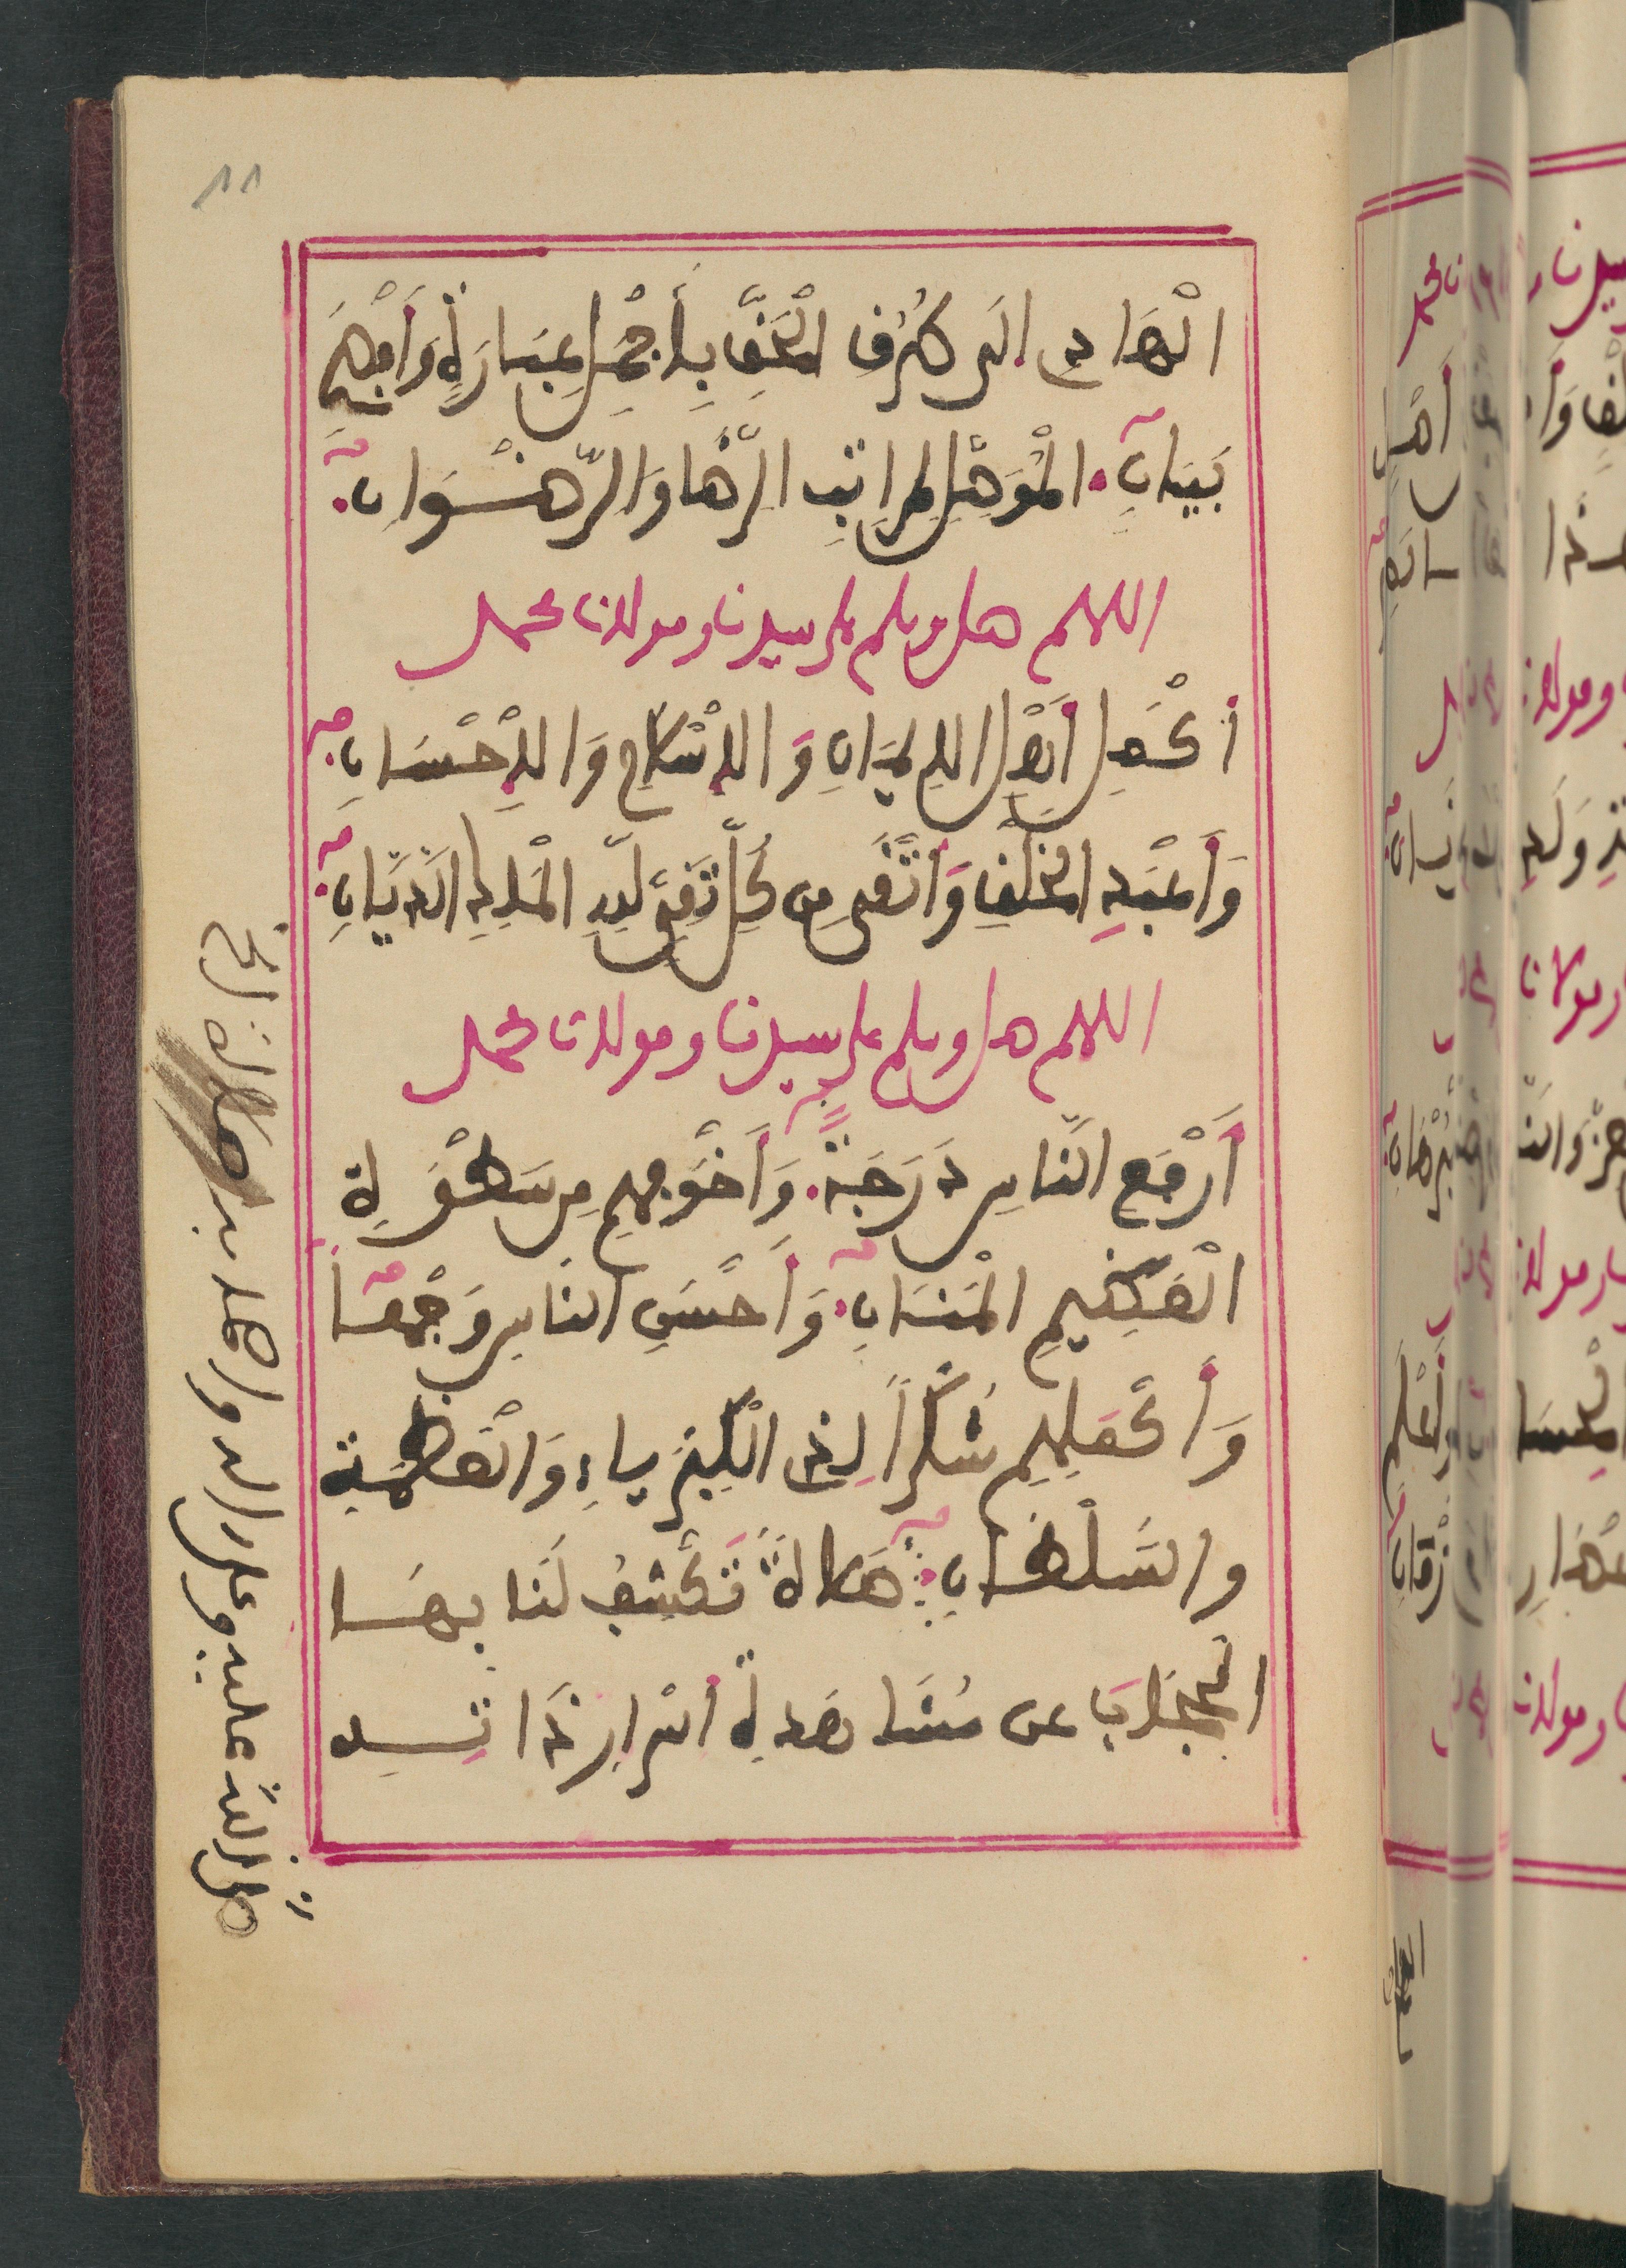 ١١
الْهَادِي إِلَى طُرُقِ الْحَقِّ بِأَجْمَلِ عِبَارَةٍ وَأَفْصَحِ
بَيَانٍ. الْمُوَصِّلِ لِمَرَاتِبِ الرِّضَا وَالرِّضْوَانِ.
اللهم صل وسلم على سيدنا ومولانا محمد
أَكْمَلِ أَهْلِ الْإِيمَانِ وَالْإِسْلَامِ وَالْإِحْسَانِ
وَأَعْبَدِ الْخَلْقِ وَأَتْقَى مِن كُلِّ تَقِيٍّ لِلَّهِ الْمَلِكِ الدَّيَّانِ
اللهم صل وسلم على سيدنا ومولانا محمد
أَرْفَعِ النَّاسِ دَرَجَةً. وَأَخْوَفِهِمِ مِن سَطْوَةِ
الْعَظِيمِ الْمَنَّانِ. وَأَحْسَنِ النَّاسِ وَجْهًا
وَأَكْمَلِهِمِ شُكْراً لِذِي الْكِبْرِيَاءِ وَالْعَظَمَةِ
وَالسُّلْطَانِ. صَلَاةً تَكْشِفُ لَنَا بِهَا
الْحِجَابَ عن مُشَاهَدَةِ أَسْرَارِ ذَاتِهِ
صلى الله عليه وعلى آله وأصحابه صلاة الخ